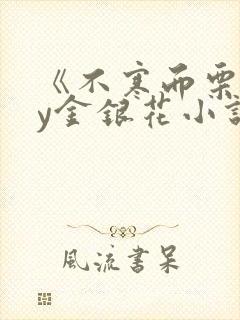 《不寒而栗
y金银花小說
風流書呆